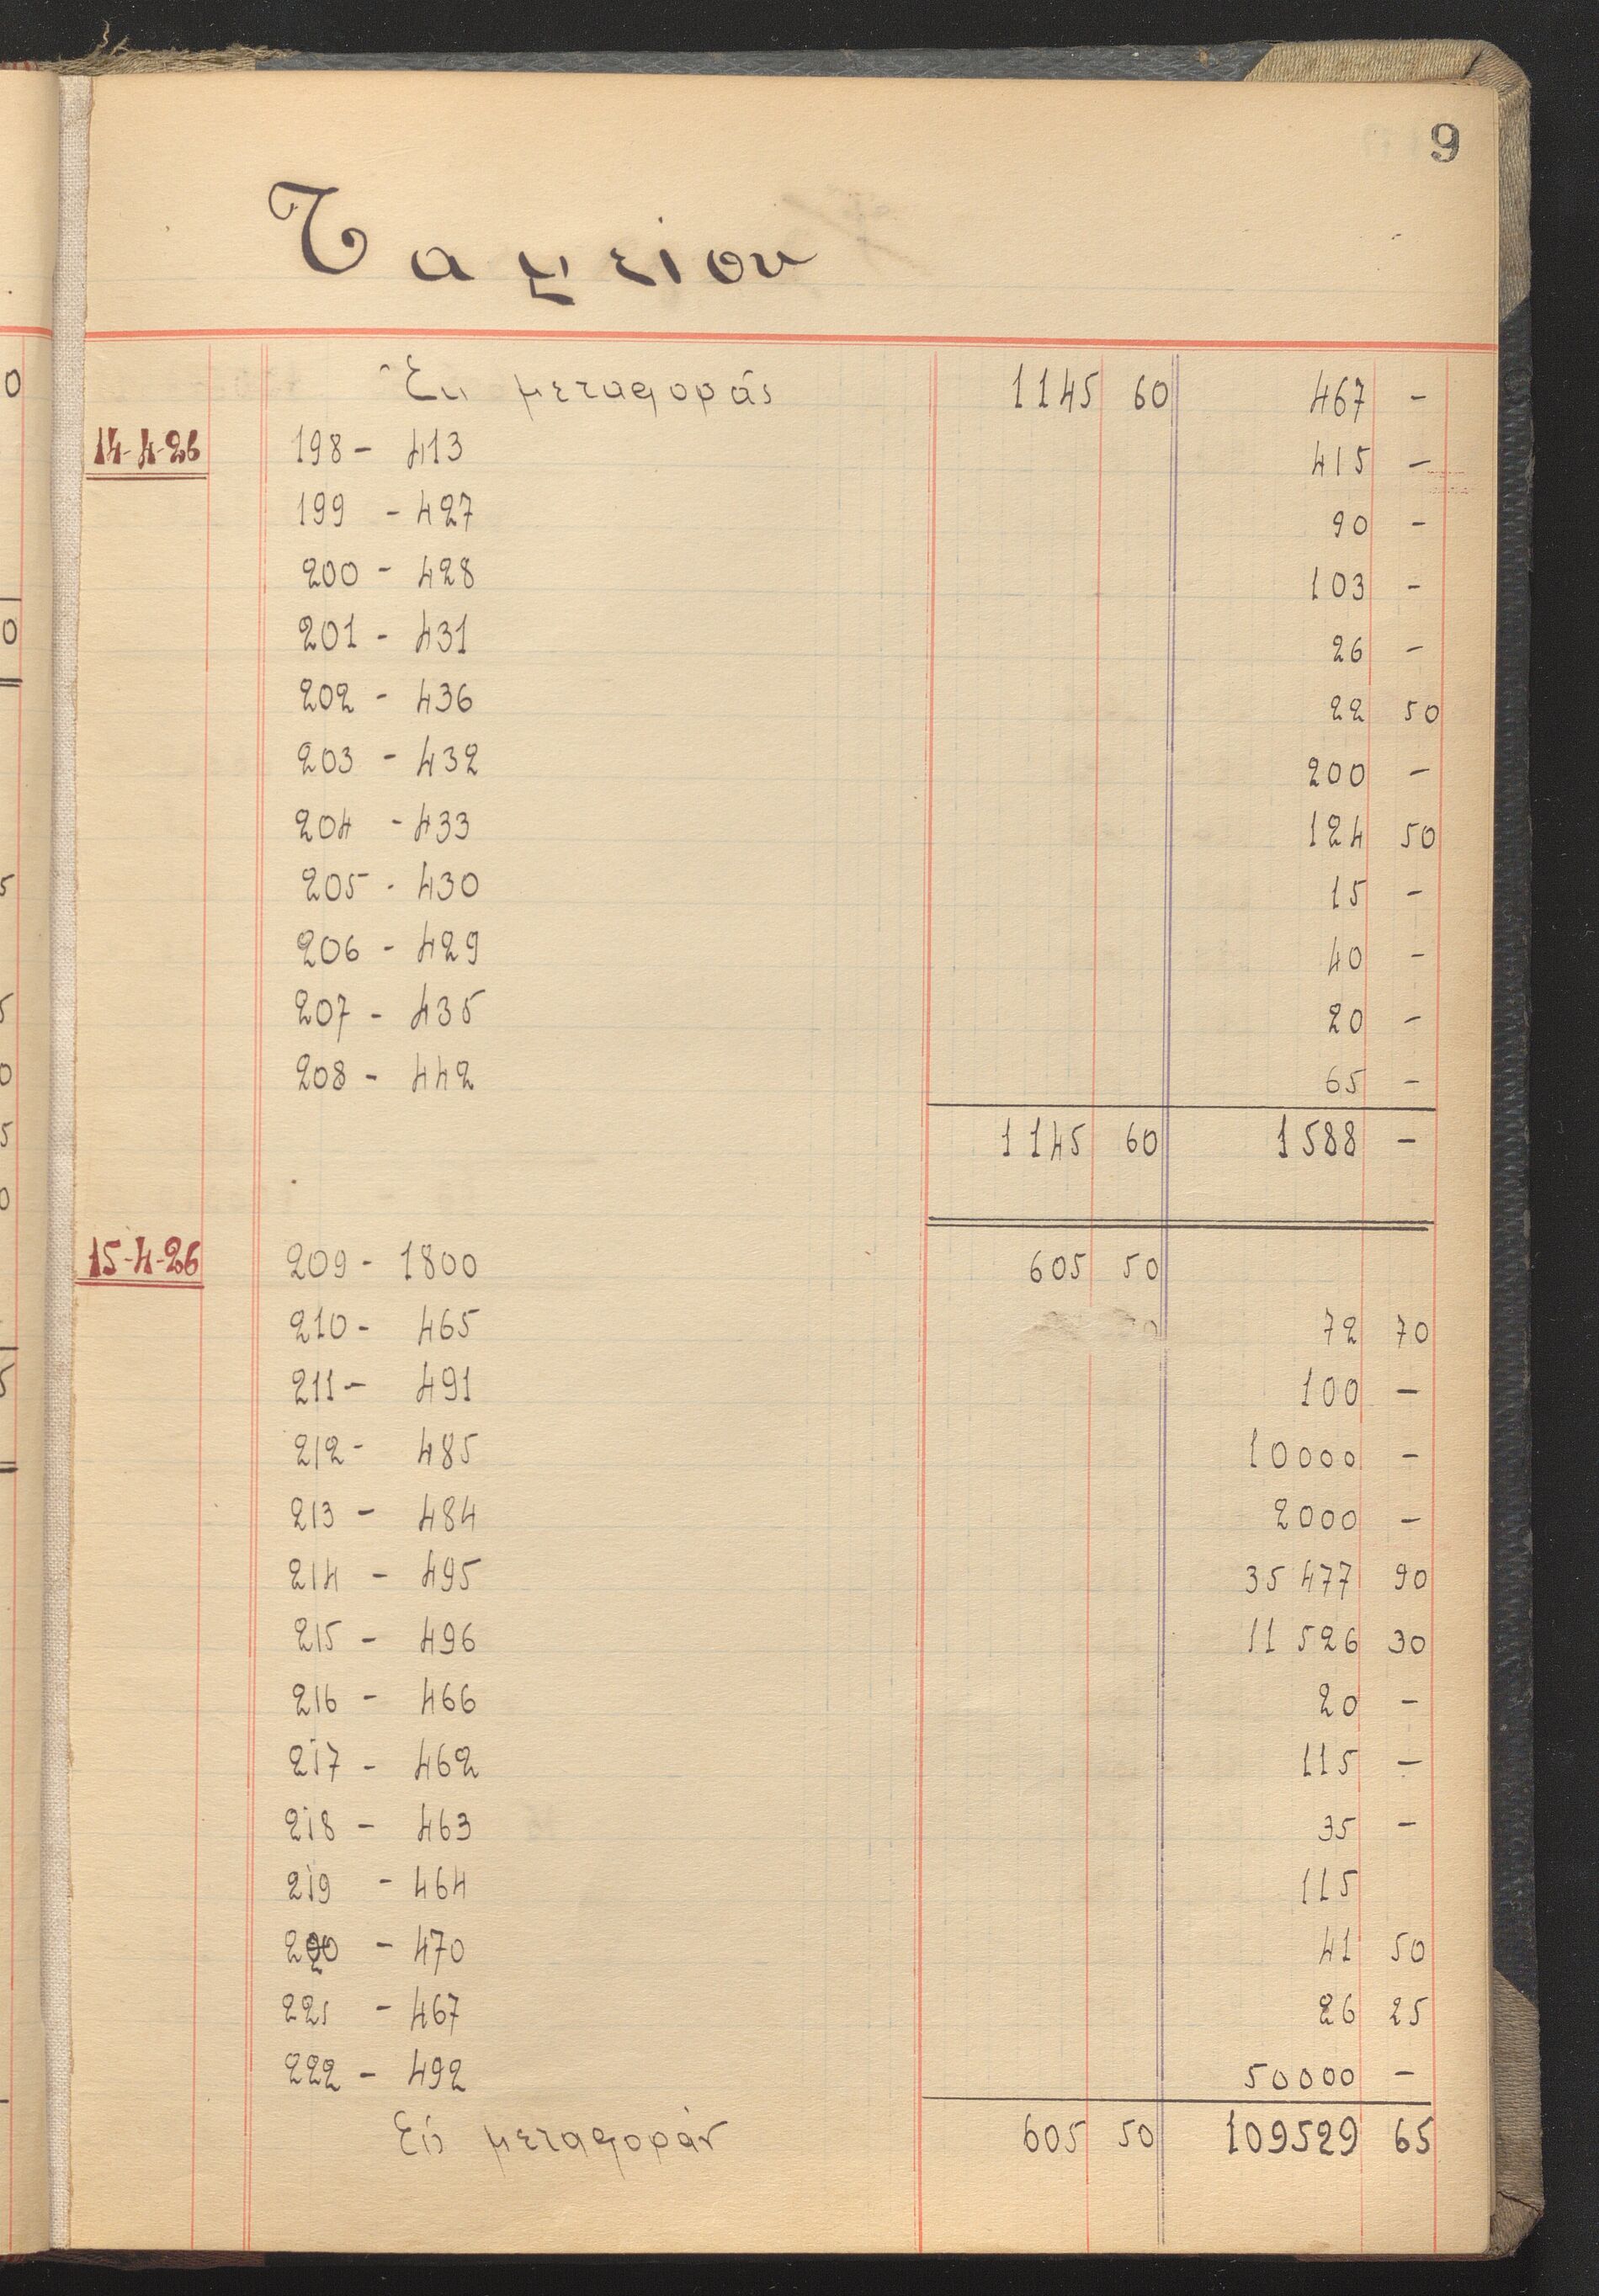 9
Ταμείου
Ἐκ μεταφοράς 1145 60 467 -
14-4-26 198 - 413 415 -
199 - 427 90 -
200 - 428 103 -
201 - 431 26 -
202 - 436 22 50
203 - 432 200 -
204 - 433 124 50
205 - 430 15 -
206 - 429 40 -
207 - 435 20 -
208 - 442 65 -
1145 60 1588 -
15-4-26 209 - 1800 605 50
210 - 465 72 70
211 - 491 100 -
212 - 485 10000 -
213 - 484 2000 -
214 - 495 35477 90
215 - 496 11526 30
216 - 466 20 -
217 - 462 115 -
218 - 463 35 -
219 - 464 115
220 - 470 41 50
221 - 467 26 25
222 - 492 50000 -
Εἰς μεταφοράν 605 50 109529 65